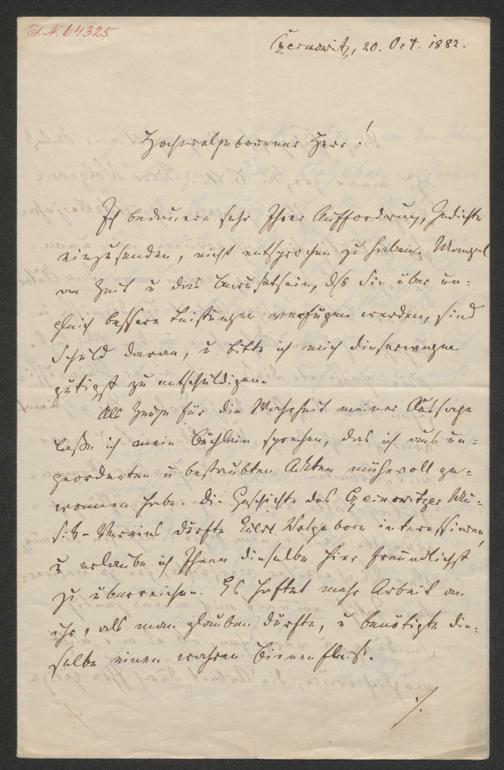 I.N. 64325
Czernowitz, 20. Oct. 1882.
Hochwolgeborener Herr!
Ich bedauere sehr Ihrer Aufforderung, Gedichte
einzusenden, nicht entsprochen zu haben. Mangel
an Zeit u das Bewußtsein, daß Sie über un-
gleich bessere Leistungen verfügen werden, sind
Schuld daran, u bitte ich mich dieserwegen
gütigst zu entschuldigen.
Als Zeuge für die Wahrheit meiner Aussage
lasse ich mein Büchlein sprechen, das ich aus un-
geordneten u bestaubten Akten mühevoll ge-
wonnen habe. Die Geschichte des Czernowitzer Mu-
sik-Vereins dürfte Euer Wolgeboren interessieren,
u erlaube ich Ihnen dieselbe hier freundlichst
zu überreichen. Es haftet mehr Arbeit an
ihr, als man glauben dürfte, u benötigte die-
selbe einen wahren Bienenfleiß.